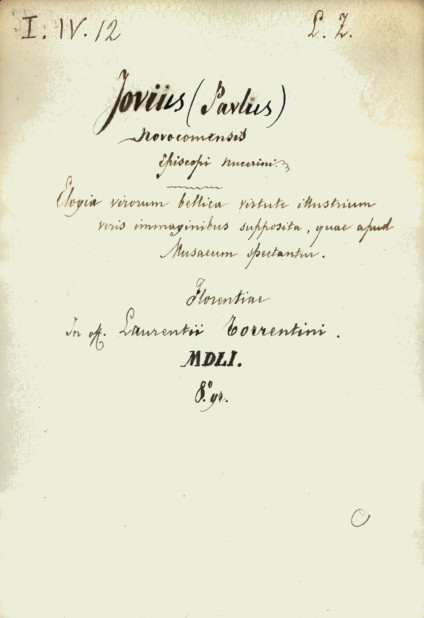 I. IV. 12
L. Z.
Jovius (Pavlus)
Novocomensis
Episcopi Nucerini
Elogia virorum bellica virtute illustrium
veris immaginibus supposita, quae apud
Musaeum spectantur.
Florentiae
In off. Laurentii Torrentini.
MDLI.
8.° gr.